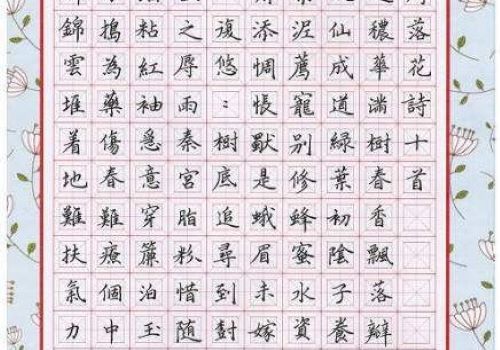 落花詩十首
穠華滿樹春香飄落瓣
仙成道綠葉初陰子養
泥薦寵別修蜂蜜水資
添惆悵是蛾眉未嫁
復悠：樹底追尋到對
之辱雨秦宮脂粉惜随
粘紅袖意穿簾泊玉
搗為藥傷春難療個中
錦雲堆着地難扶氣力